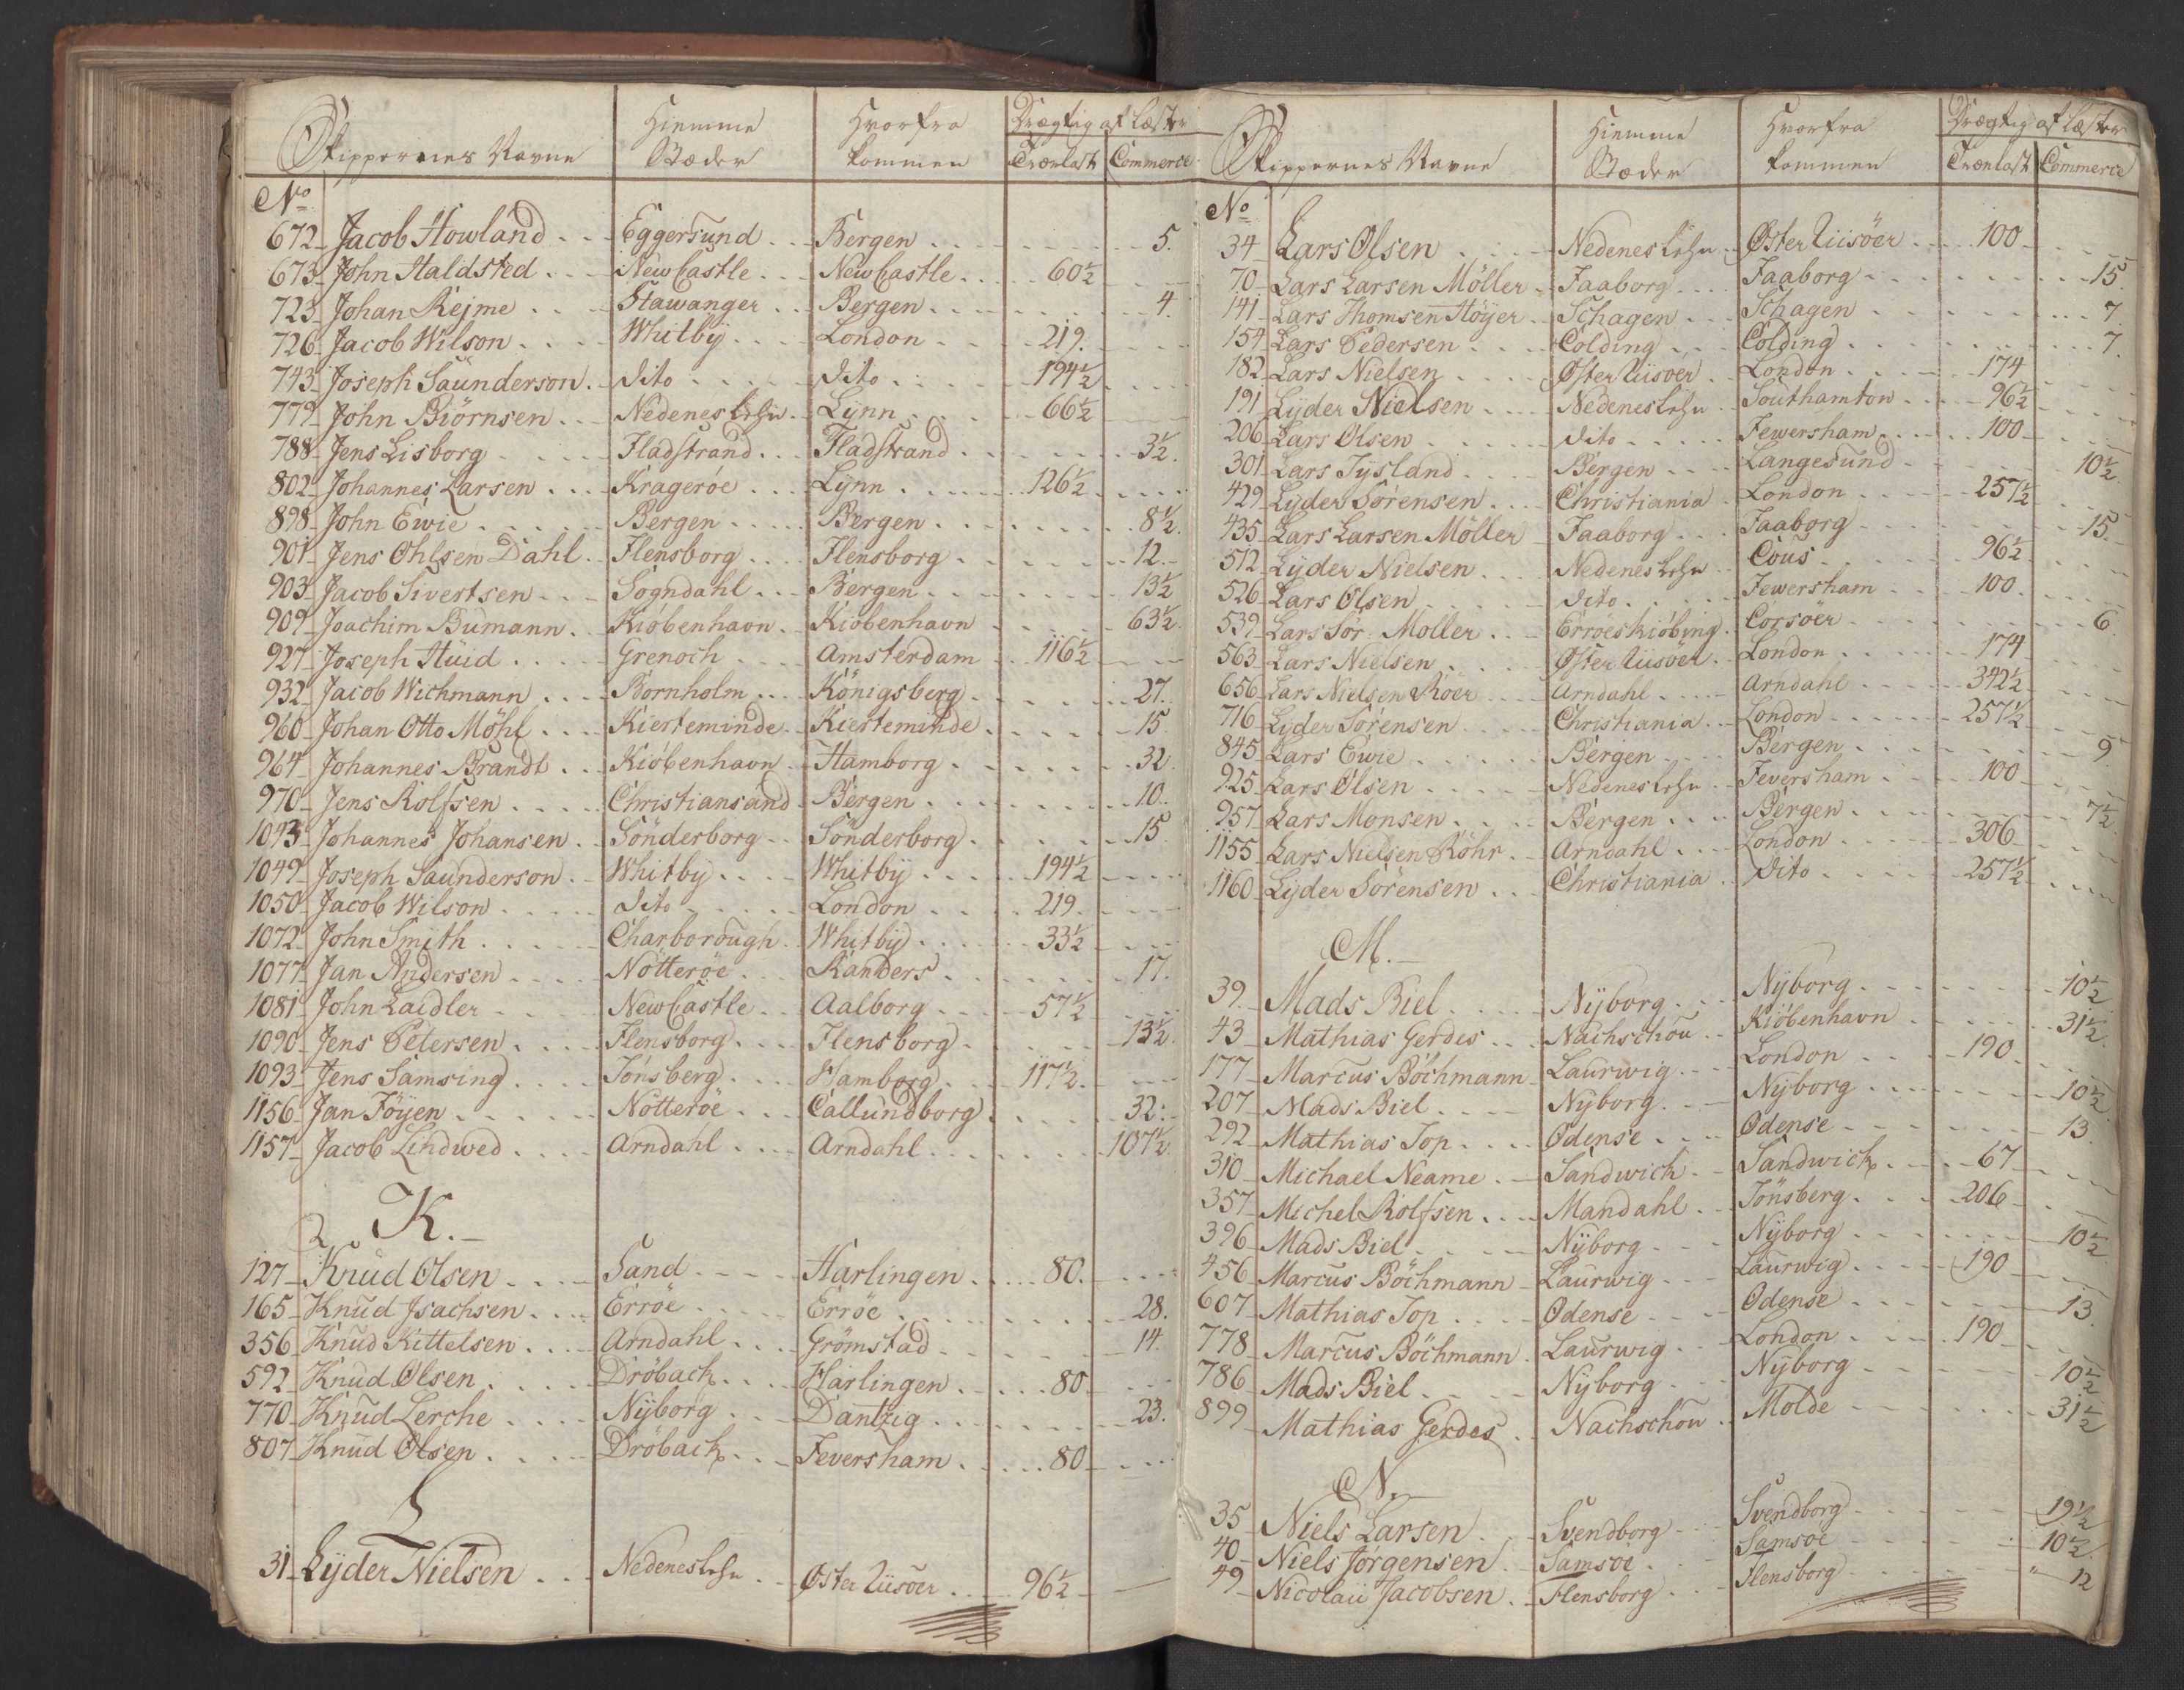 Skippernes Navne Hiemme Stæder Hvorfra kommen Drægtig af Læster Trælast Commerce
No
672 Jacob Howland Eggersund Bergen 5.
673 John Haldsted NewCastle NewCastle 60½
723 Johan Rejme Stawanger Bergen 4.
726 Jacob Wilson Whitby London 219.
743 Joseph Saunderson dito dito 194½
779 John Biörnsen Nedenes Lehn Lÿnn 66½
788 Jens Lisborg Fladstrand Fladstrand 3½.
802 Johannes Larsen Kragerøe Lÿnn 126½
898 John Ewie Bergen Bergen 8½.
901 Jens Ohlsen Dahl Flensborg Flensborg 12.
903 Jacob Sivertsen Sogndahl Bergen 13½
909 Joachim Bumann Kiöbenhavn Kiöbenhavn 63½.
927 Joseph Huid Grenoch Amsterdam 116½
932 Jacob Wichmann Bornholm Königsberg 27.
960 Johan Otto Möhl Kierteminde Kierteminde 15.
964 Johannes Brandt Kiöbenhavn Hamborg 32.
970 Jens Rolfsen Christiansand Bergen 10.
1043 Johannes Johansen Sönderborg Sönderborg 15.
1049 Joseph Saunderson Whitby Whitbÿ 194½
1050 Jacob Wilson dito London 219.
1072 John Smith Charborough Whitbÿ 33½
1077 Jan Andersen Nötteröe Randers 17.
1081 John Laidler NewCastle Aalborg 57½
1090 Jens Petersen Flensborg Flensborg 13½.
1093 Jens Samsing Tönsberg Hamborg 117½.
1156 Jan Föÿen Nötteröe Callundborg 32.
1157 Jacob Lindwed Arndahl Arndahl 107½.
K.
127 Knud Olsen Sand Harlingen 80.
165 Knud Isachsen Erröe Erröe 28.
356 Knud Kittelsen Arndahl Grömstad 14.
592 Knud Olsen Dröbach Harlingen 80
770 Knud Lerche Nÿborg Dantzig 23.
807 Knud Olsen Dröbach Feversham 80
L
31 Lÿder Nielsen Nedenes Lehn Øster Riisöer 96½
Skippernes Navne Hiemme Stæder Hvorfra kommen Drægtig af Læster Trælast Commerce
No
34 Lars Olsen Nedenes Lehn Øster Riisöer 100
70 Lars Larsen Möller Faaborg Faaborg 15.
141 Lars Thomsen Höÿer Schagen Schagen 7.
154 Lars Pedersen Colding Colding 7.
182 Lars Nielsen Øster Riisöer London 174
191 Lÿder Nielsen Nedenes Lehn Southamton 96½
206 Lars Olsen dito Fewersham 100
301 Lars Tÿsland Bergen Langesund 10½
429 Lÿder Sörensen Christiania London 257½
435 Lars Larsen Möller Faaborg Faaborg 15.
512 Lÿder Nielsen Nedenes Lehn Cous 96½
526 Lars Olsen dito Fewersham 100.
539 Lars Sör: Möller Erröeskiöbing Corsöer 6
563 Lars Nielsen Øster Riisöer London 174
656 Lars Nielsen Röer Arndahl Arndahl 342½
716 Lÿder Sörensen Christiania London 257½
845 Lars Ewie Bergen Bergen 9
925 Lars Olsen Nedenes Lehn Feversham 100
957 Lars Monsen Bergen Bergen 7½.
1155 Lars Nielsen Röhr Arndahl London 306
1160 Lÿder Sörensen Christiania dito 257½
M.
39 Mads Biel Nÿborg Nÿborg 10½
43 Mathias Gerdes Nachschou Kiöbenhavn 31½
177 Marcus Böchmann Laurwig London 190
207 Mads Biel Nÿborg Nÿborg 10½
292 Mathias Top Odense Odense 13.
310 Michael Neame Sandwich Sandwich 67
357 Michel Rolfsen Mandahl Tönsberg 206
396 Mads Biel Nÿborg Nÿborg 10½
456 Marcus Böchmann Laurwig Laurwig 190
607 Mathias Top Odense Odense 13.
778 Marcus Böchmann Laurwig London 190
786 Mads Biel Nÿborg Nÿborg 10½
899 Mathias Gerdes Nachschou Molde 31½
N.
35 Niels Larsen Svendborg Svendborg 19½
40 Niels Jörgensen Samsöe Samsöe 10½.
49 Nicolaii Jacobsen Flensborg Flensborg 12